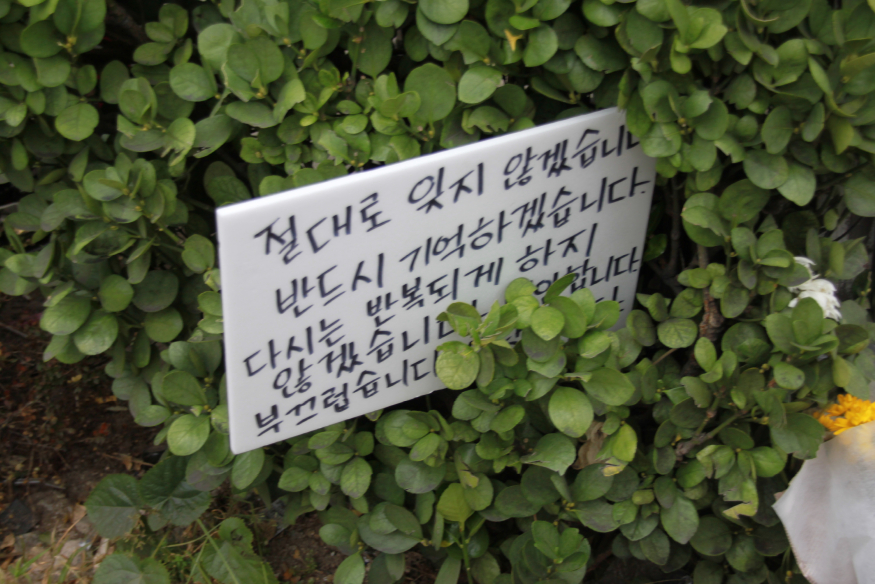 절대로 잊지 않겠습니다
반드시 기억하겠습니다.
다시는 반복되게 하지
않겠습니다
부끄럽습니다